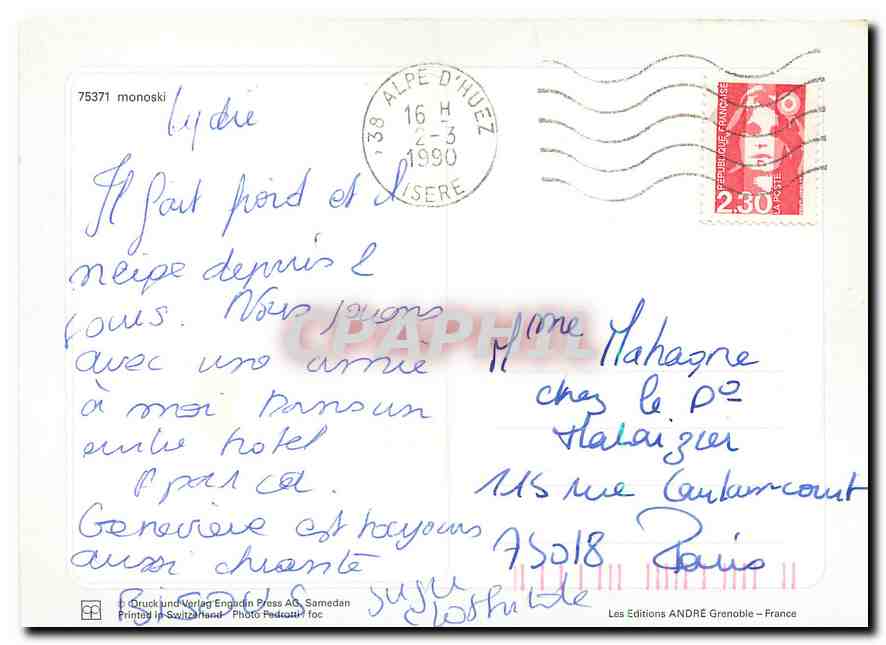 75371 monoski
38 ALPE D'HUEZ
16 H
2-3
1990
ISERE
REPUBLIQUE FRANÇAISE
2,30
LA POSTE
Lydie
Il fait froid et il
neige depuis 2
jours. Nous jouons
avec une amie
à moi Dans un
autre hotel
A part ca.
Geneviève est toujours
aussi chiante
BISOUS
CPAPHIL
Mme Mahagne
chez le Do
Malaizier
115 rue Caulaincourt
75018 Paris
© Druck und Verlag Engadin Press AG, Samedan
Printed in Switzerland Photo Pedrotti / foc
Les Editions ANDRÉ Grenoble – France